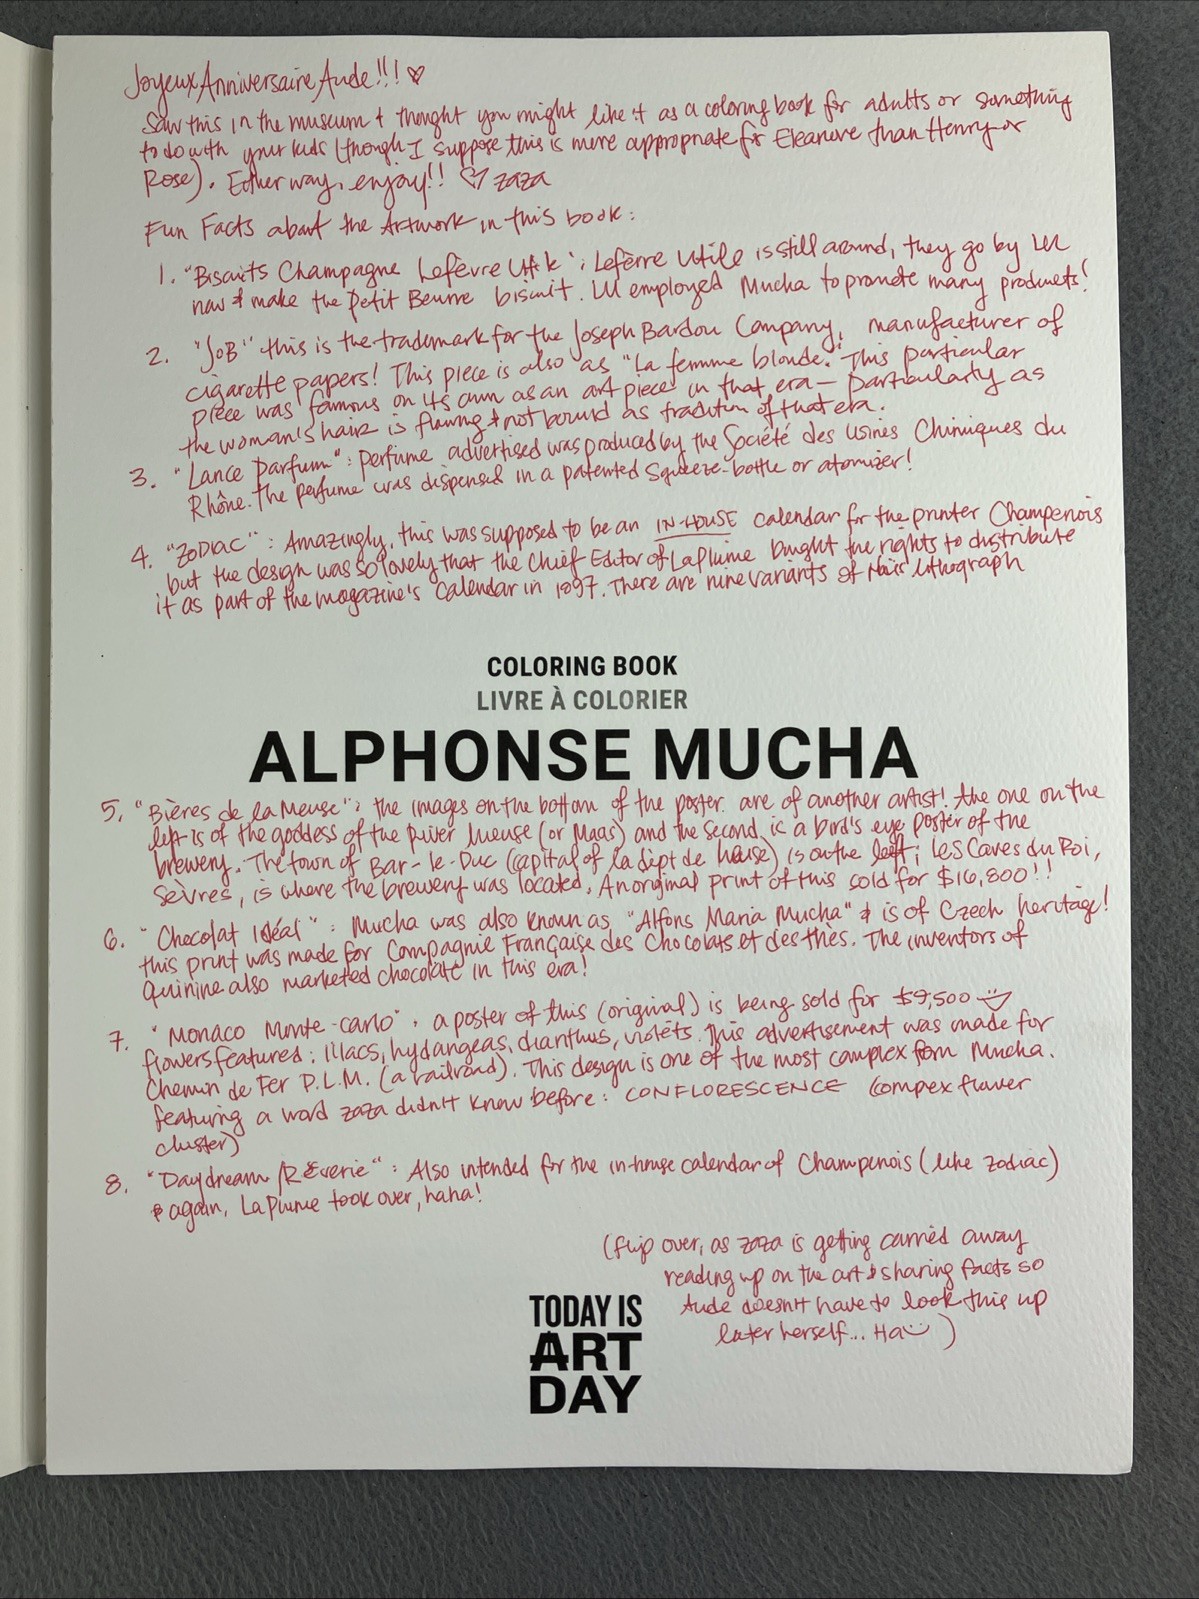 Joyeux Anniversaire Aude!!! ♡
Saw this in the museum & thought you might like it as a coloring book for adults or something
to do with your kids (though I suppose this is more appropriate for Eleanore than Henry or
Rose). Either way, enjoy!! ♡ zaza
Fun Facts about the Artwork in this book:
1. "Biscuits Champagne Lefèvre Utile": Lefèvre Utile is still around, they go by LU
now & make the Petit Beurre biscuit. LU employed Mucha to promote many products!
2. "JOB" this is the trademark for the Joseph Bardou Company, manufacturer of
cigarette papers! This piece is also as "La femme blonde." This particular
piece was famous on its own as an art piece in that era – particularly as
the woman's hair is flowing & not bound as tradition of that era.
3. "Lance Parfum": perfume advertised was produced by the Société des Usines Chimiques du
Rhône. The perfume was dispensed in a patented squeeze-bottle or atomizer!
4. "ZODIAC": Amazingly, this was supposed to be an IN-HOUSE calendar for the printer Champenois
but the design was so lovely that the Chief Editor of La Plume bought the rights to distribute
it as part of the magazine's calendar in 1897. There are nine variants of this lithograph
COLORING BOOK
LIVRE À COLORIER
ALPHONSE MUCHA
5. "Bières de la Meuse": the images on the bottom of the poster are of another artist! The one on the
left is of the goddess of the River Meuse (or Maas) and the second is a bird's eye poster of the
brewery. The town of Bar-le-Duc (capital of la dépt de Meuse) is on the left; Les Caves du Roi,
Sèvres, is where the brewery was located. An original print of this sold for $16,800!!
6. "Chocolat Idéal": Mucha was also known as "Alfons Maria Mucha" & is of Czech heritage!
this print was made for Compagnie Française des Chocolats et des thès. The inventors of
Quinine also marketed chocolate in this era!
7. "Monaco Monte-Carlo": a poster of this (original) is being sold for $9,500
flowers featured: lilacs, hydangeas, dianthus, violets. This advertisement was made for
Chemin de Fer P.L.M. (a railroad). This design is one of the most complex from Mucha.
featuring a word zaza didn't know before: CONFLORESCENCE (compex flower
cluster)
8. "Daydream/Rêverie": Also intended for the in-house calendar of Champenois (like Zodiac)
& again, La Plume took over, haha!
(flip over, as zaza is getting carried away
reading up on the art & sharing facts so
Aude doesn't have to look this up
later herself... Ha )
TODAY IS
ART
DAY